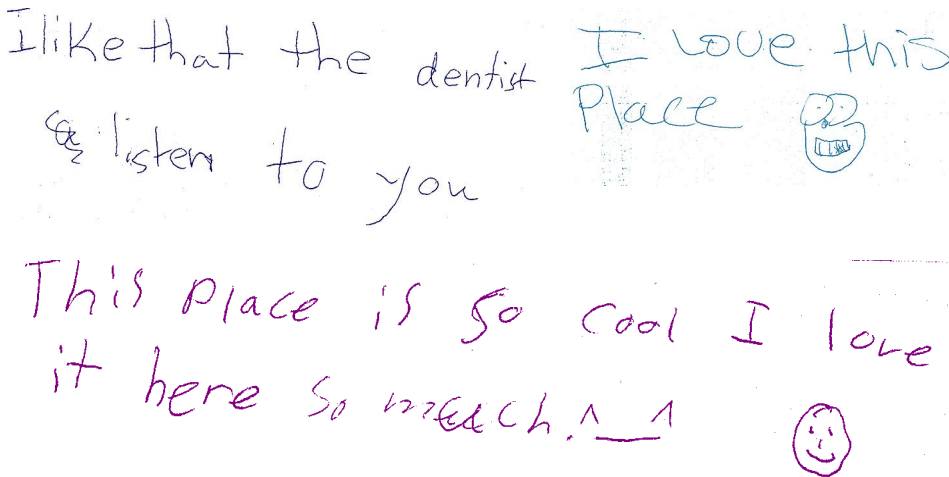 I like that the dentist
listen to you
I love this
Place
This place is so cool I love
it here so much. ^__^